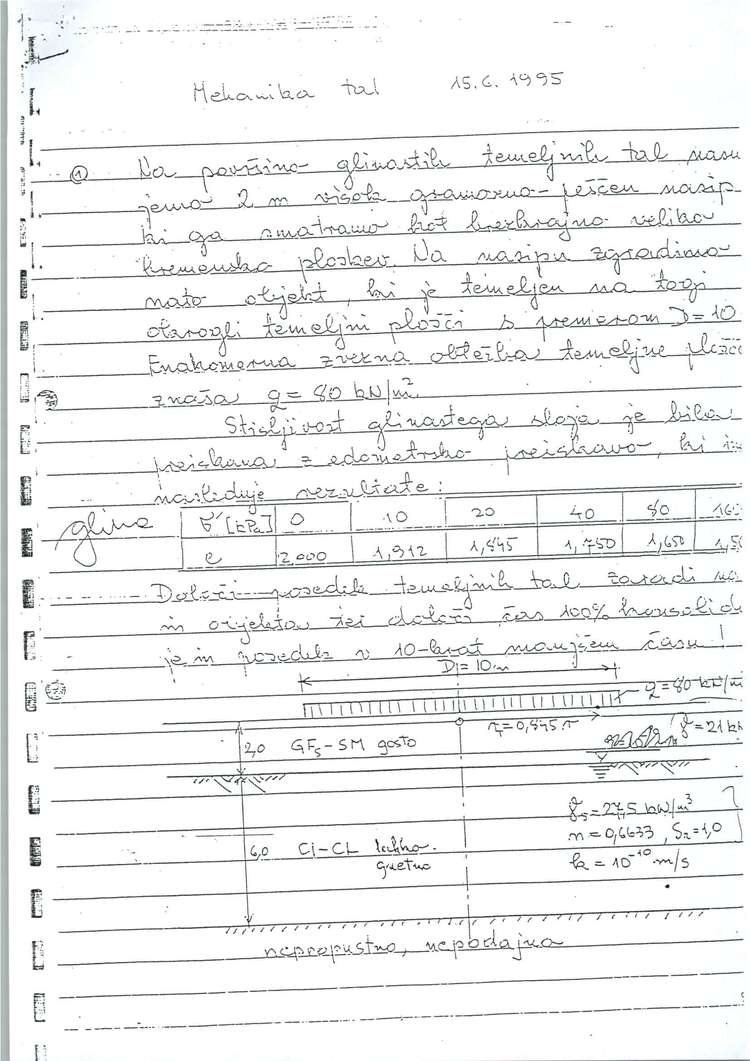 Mehanika tal 15.6.1995
① Na površino glinastih temeljnih tal nasu
jemo 2 m visok gramozno-peščen nasip
ki ga smatramo kot brezkrajno veliko
bremensko ploskev. Na nasipu zgradimo
nato objekt, ki je temeljen na togi
okrogli temeljni plošči s premerom D=10
Enakomerna zvezna obtežba temeljne plošče
znaša q = 80 kN/m²
Stisljivost glinastega sloja je bila
preiskana z edometrsko preiskavo, ki im
nasleduje rezultate:
glina σ' [kPa] 0 10 20 40 80 160
e 2,000 1,912 1,845 1,750 1,650 1,5
Določi posedek temeljnih tal zaradi na
in objekta ter določi čas 100% konsolid
je in posedek v 10-krat manjšem času!
D=10m
q=80 kN/m
r=0,845 r γ=21 k
2,0 GFs-SM gosto
γs=27,5 kN/m³
n=0,6633, Sr=1,0
6,0 CI-CL lahko
gnetno
k=10⁻¹⁰ m/s
nepropustno, nepodajno